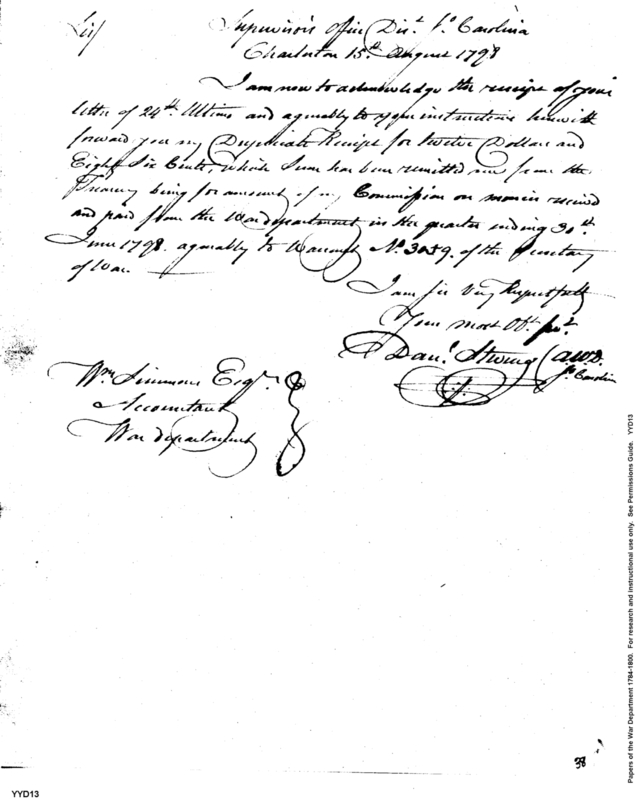 Sir/
Supervisor's Office Dist. So Carolina
Charleston 15th August 1798
I am now to acknowledge the receipt of your
letter of 24th Ultimo and agreeably to your instructions herewith
forward you my Duplicate Receipt for twelve Dollars and
Eighty Six Cents, which Sum has been remitted me from the
Treasury being for amount of my Commission on monies received
and paid from the War department in the quarter ending 30th
June 1798. agreeably to Warrant No. 3059. of the Secretary
of War.
I am Sir Very Respectfully
Your most Obt. Sert.
Danl. Stevens A.W.D.
So. Carolina
Wm. Simmons Esqr.
Accountant
War department
38
YYD13
Papers of the War Department 1784-1800. For research and instructional use only. See Permissions Guide. YYD13